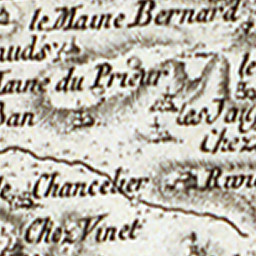 le Maine Bernard
auds
Maine du Prieur
le
Ban
les Jau
Chez
le Chancelier
Rivi
Chez Vinet